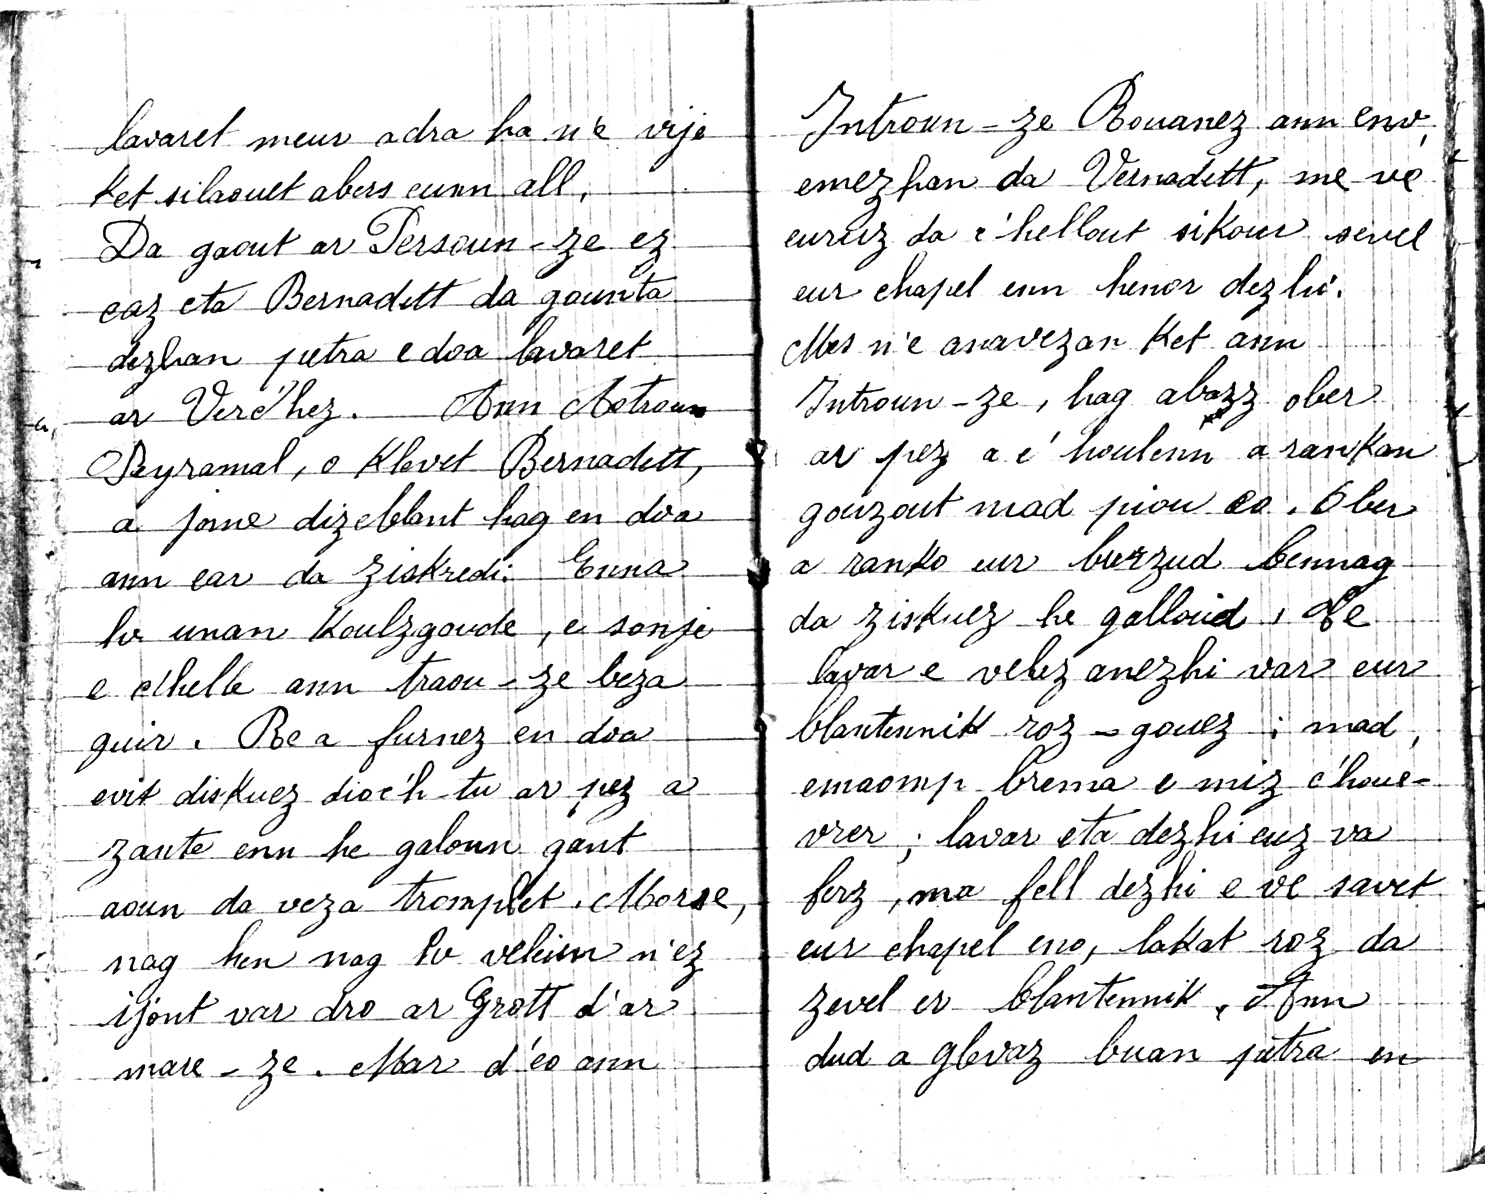 lavaret meur adra ha n'e vije
ket silaouet abers eunn all.
Da gaout ar Persoun-ze ez
eaz eta Bernadett da gounta
dezhan petra e doa lavaret
ar Verc'hez. Ann Aotroun
Peyramal, o klevet Bernadett,
a jome dizeblant hag en doa
ann ear da ziskredi. Enna
he unan koulzgoude, e sonje
e c'helle ann traou-ze beza
guir. Re a furnez en doa
evit diskuez dioc'h-tu ar pez a
zante enn he galoun gant
aoun da veza trompet. Morse,
nag hen nag he vekim n'ez
ijont var dro ar Grott d'ar
mare-ze. Mar d'eo ann
Introun-ze Rouanez ann env,
emezhan da Vernadett, me ve
euruz da c'hellout sikour sevel
eur chapel enn henor dezhi.
Mes n'e anavezan ket ann
Introun-ze, hag abarz ober
ar pez a c'houlenn a rankan
gouzout mad piou eo. Ober
a ranko eur burzud bennag
da ziskuez he galloud. Te
lavar e velez anezhi var eur
blantennik roz-gouez ; mad,
emaomp brema e miz c'houe-
vrer ; lavar eta dezhi euz va
ferz, ma fell dezhi e ve savet
eur chapel eno, lakat roz da
zevel er blantennik. Ann
dud a glevaz buan petra en